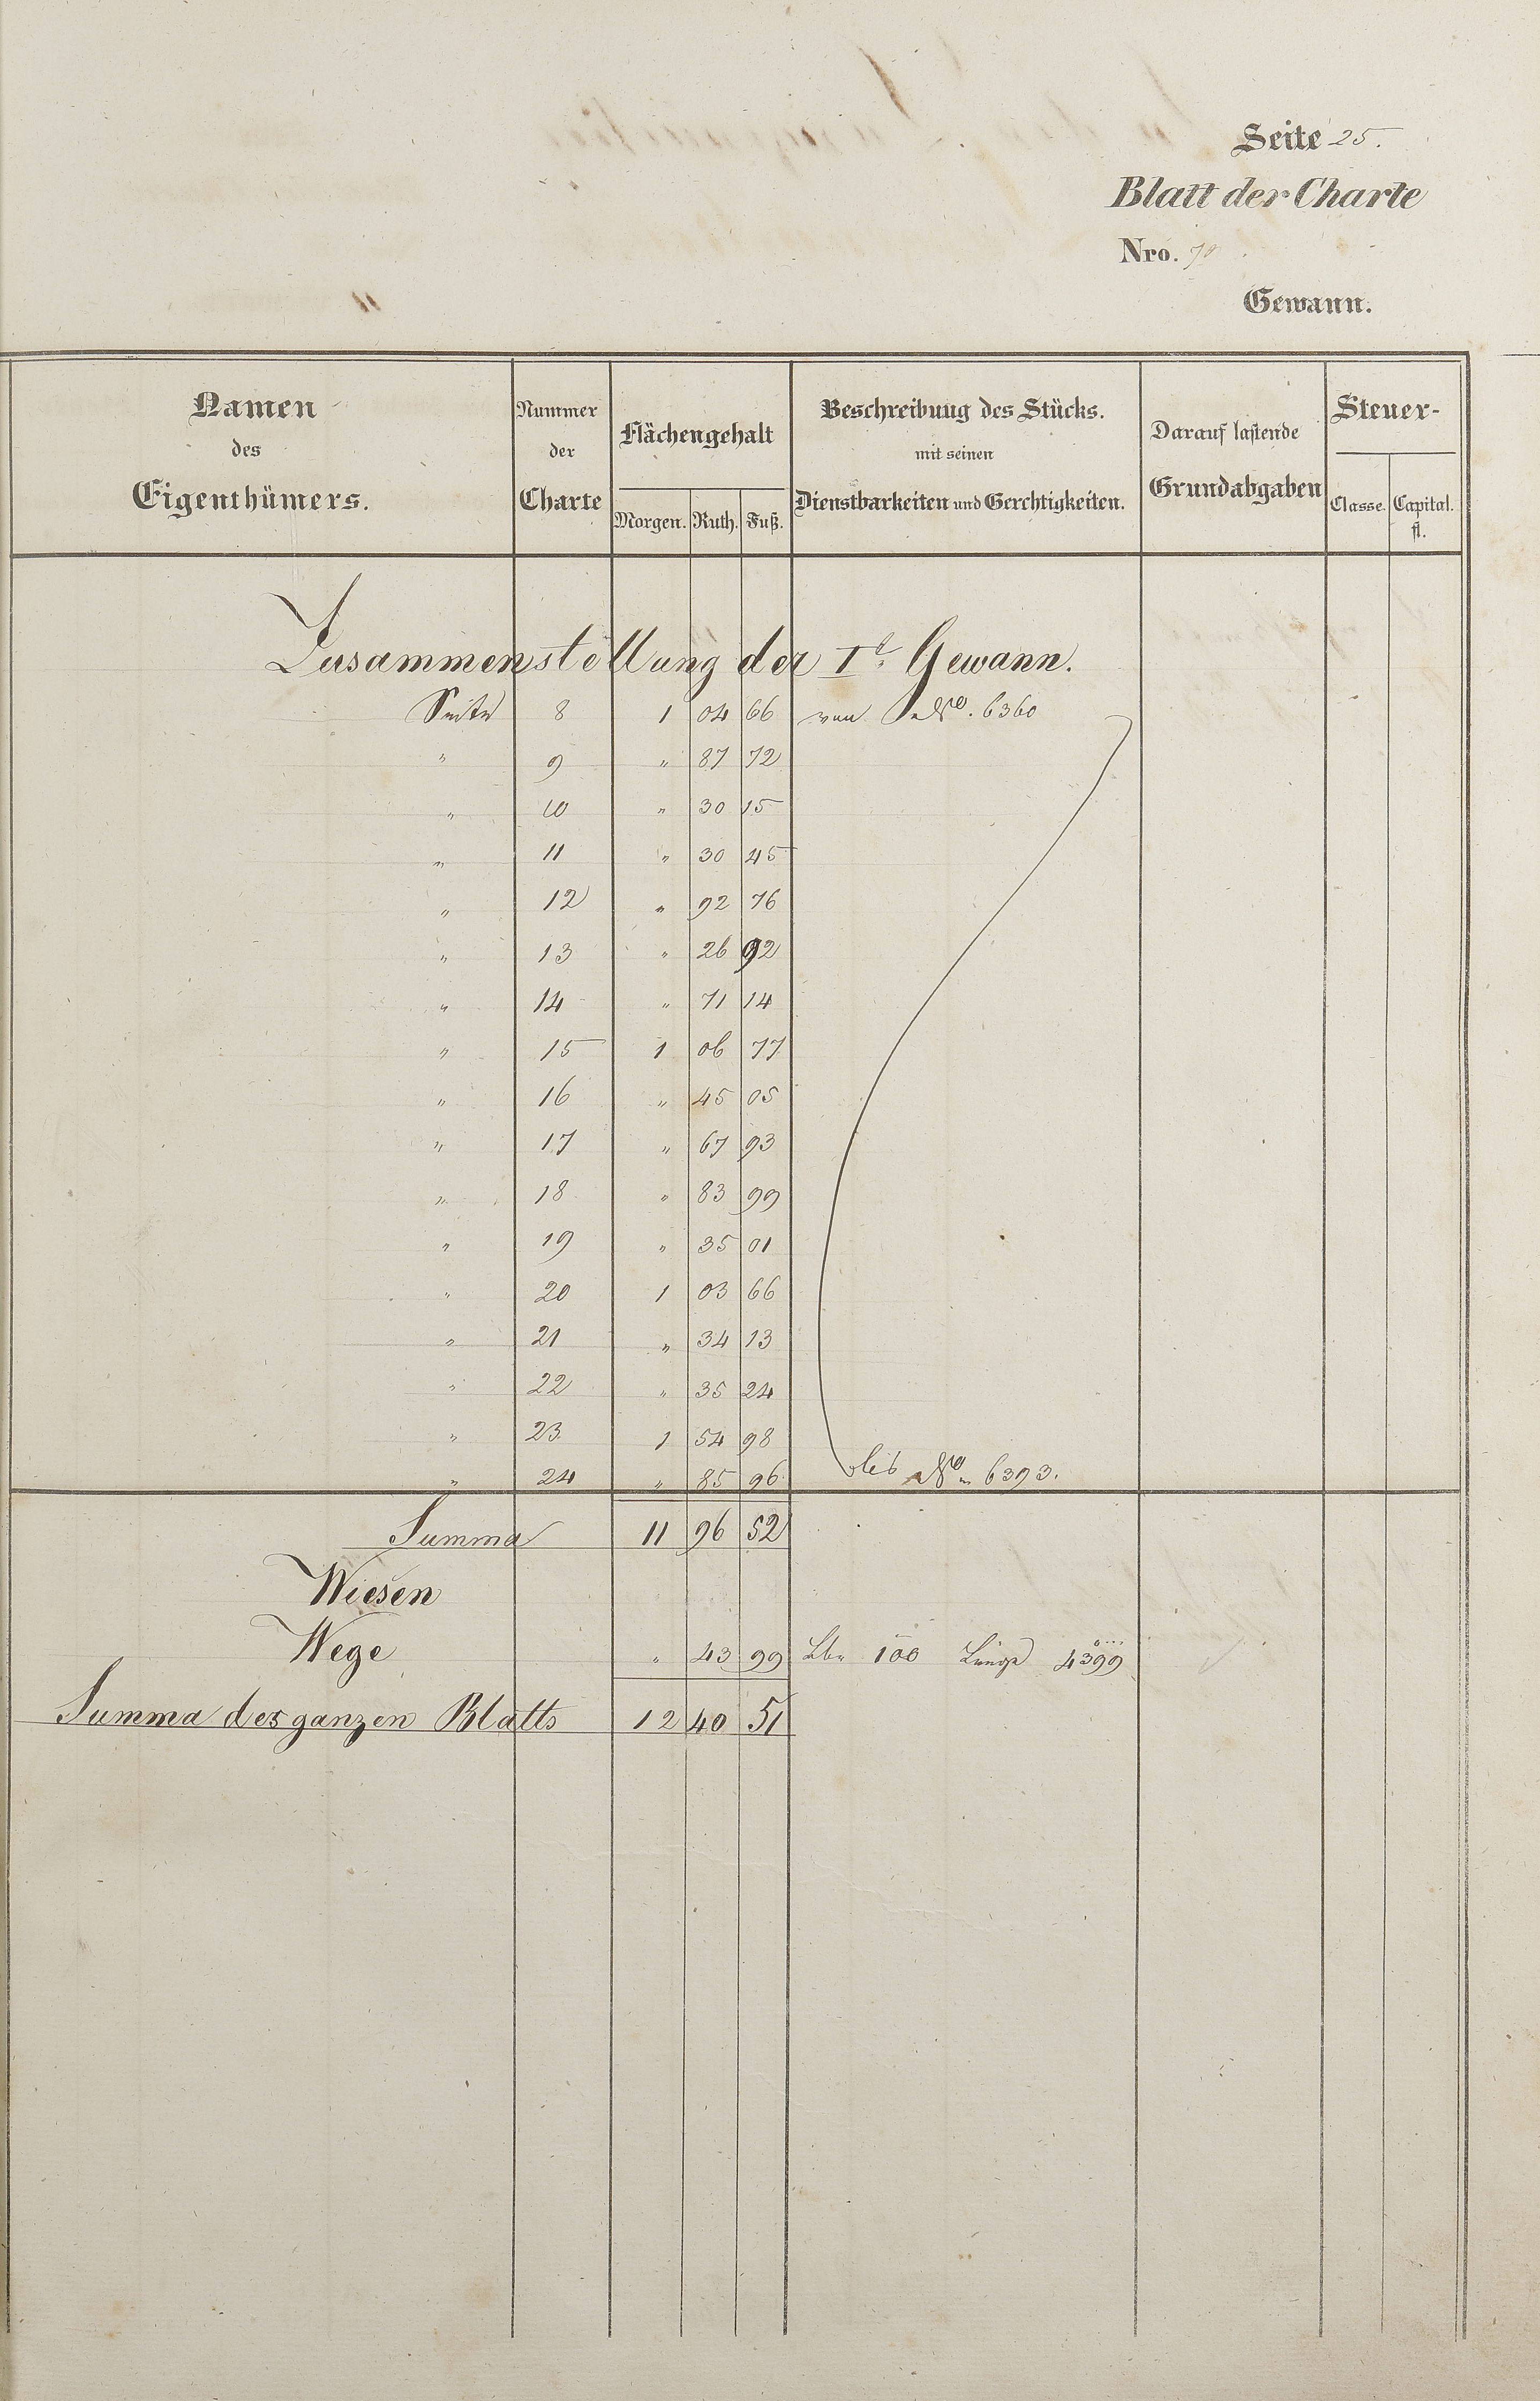 Seite 25.
Blatt der Charte
Nro. 70
Gewann.
Namen des Eigenthümers. Nummer der Charte Flächengehalt Morgen. Ruth. Fuß. Beschreibung des Stücks. mit seinen Dienstbarkeiten und Gerechtigkeiten. Darauf lastende Grundabgaben Steuer- Classe. Capital. fl.
Zusammenstellung der Iᵗ. Gewann.
Seite 8 1 04 66 von No. 6360
" 9 " 87 72
" 10 " 30 15
" 11 " 30 45
" 12 " 92 76
" 13 " 26 92
" 14 " 71 14
" 15 1 06 77
" 16 " 45 05
" 17 " 67 93
" 18 " 83 99
" 19 " 35 01
" 20 1 03 66
" 21 " 34 13
" 22 " 35 24
" 23 1 54 98
" 24 " 85 96 bis No. 6393.
Summa 11 96 52
Wiesen
Wege " 43 99 100 Länge 4399
Summa des ganzen Blatts 12 40 51